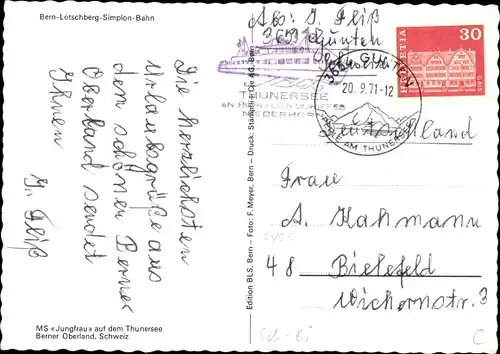 Bern-Lötschberg-Simplon-Bahn
Abs: J. Fleiß
Gunten
Die herzlichsten
Urlaubsgrüße aus
dem schönen Berner
Oberland sendet
Ihnen
J. Fleiß
MS «Jungfrau» auf dem Thunersee
Berner Oberland, Schweiz
Edition BLS, Bern – Foto: F. Meyer, Bern – Druck: Stämpfli + Cie AG, Bern
THUNERSEE
NIEDERHORN
3654 GUNTEN
20. 9. 71-12
PERLE AM THUNERSEE
HELVETIA
30
Deutschland
Frau
A. Kahmann
48 Bielefeld
Wichernstr. 3
Sch-Bi
C